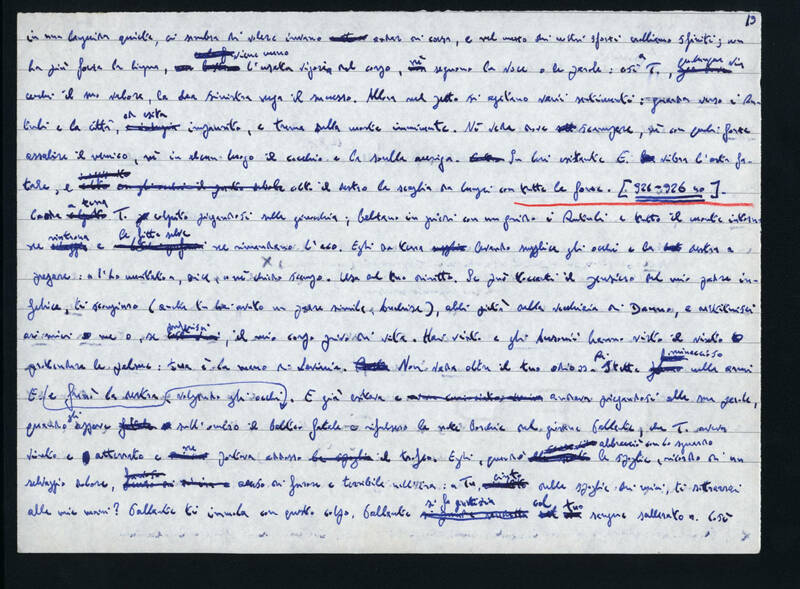 19
in una languida quiete, ci sembra di volere invano andar di corsa, e nel mezzo dei nostri sforzi crolliamo sfiniti; non
ha più forza la lingua, viene meno l'usata vigoria del corpo, né seguono la voce o le parole: così a T., qualunque via
cerchi il suo valore, la dea sinistra nega il successo. Allora nel petto si agitano varii sentimenti: guarda verso i Ru-
tuli e la città, esita impaurito, e trema della morte imminente. Né vede dove scampare, né con quali forze
assalire il nemico, né in alcun luogo il cocchio e la sorella auriga. In lui esitante E. vibra l'asta fa-
tale, e il destro la scaglia da lungi con tutte le forze. [926-926 ].
Cade a terra T. colpito piegandosi sulle ginocchia; balzano in piedi con un grido i Rutuli e tutto il monte intorno
ne rintrona e le fitte selve ne rimandano l'eco. Egli da terra alzando supplice gli occhi e la destra a
pregare: «l'ho meritato, dice, né chiedo scampo. Usa del tuo diritto. Se può toccarti il pensiero del mio padre in-
felice, ti scongiuro (anche tu hai avuto un padre simile, Anchise), abbi pietà della vecchiaia di Dauno, e restituisci
ai miei o me o, se preferisci, il mio corpo privo di vita. Hai vinto e gli Ausonii hanno visto il vinto
protendere le palme: tua è la mano di Lavinia. Non vada oltre il tuo odio.» Stette minaccioso nelle armi
E. e frenò la destra volgendo gli occhi. E già esitava e andava piegandosi alle sue parole,
quando gli apparve sull'omero il balteo fatale e rifulsero le note borchie del giovane Pallante, che T. aveva
vinto e atterrato e portava addosso il trofeo. Egli, quando abbracciò con lo sguardo le spoglie, ricordo di un
selvaggio dolore, acceso di furore e terribile nell'ira: «Tu, cinto delle spoglie dei miei, ti sottrarrai
alle mie mani? Pallante ti immola con questo colpo, Pallante si fa giustizia col tuo sangue scellerato». Così